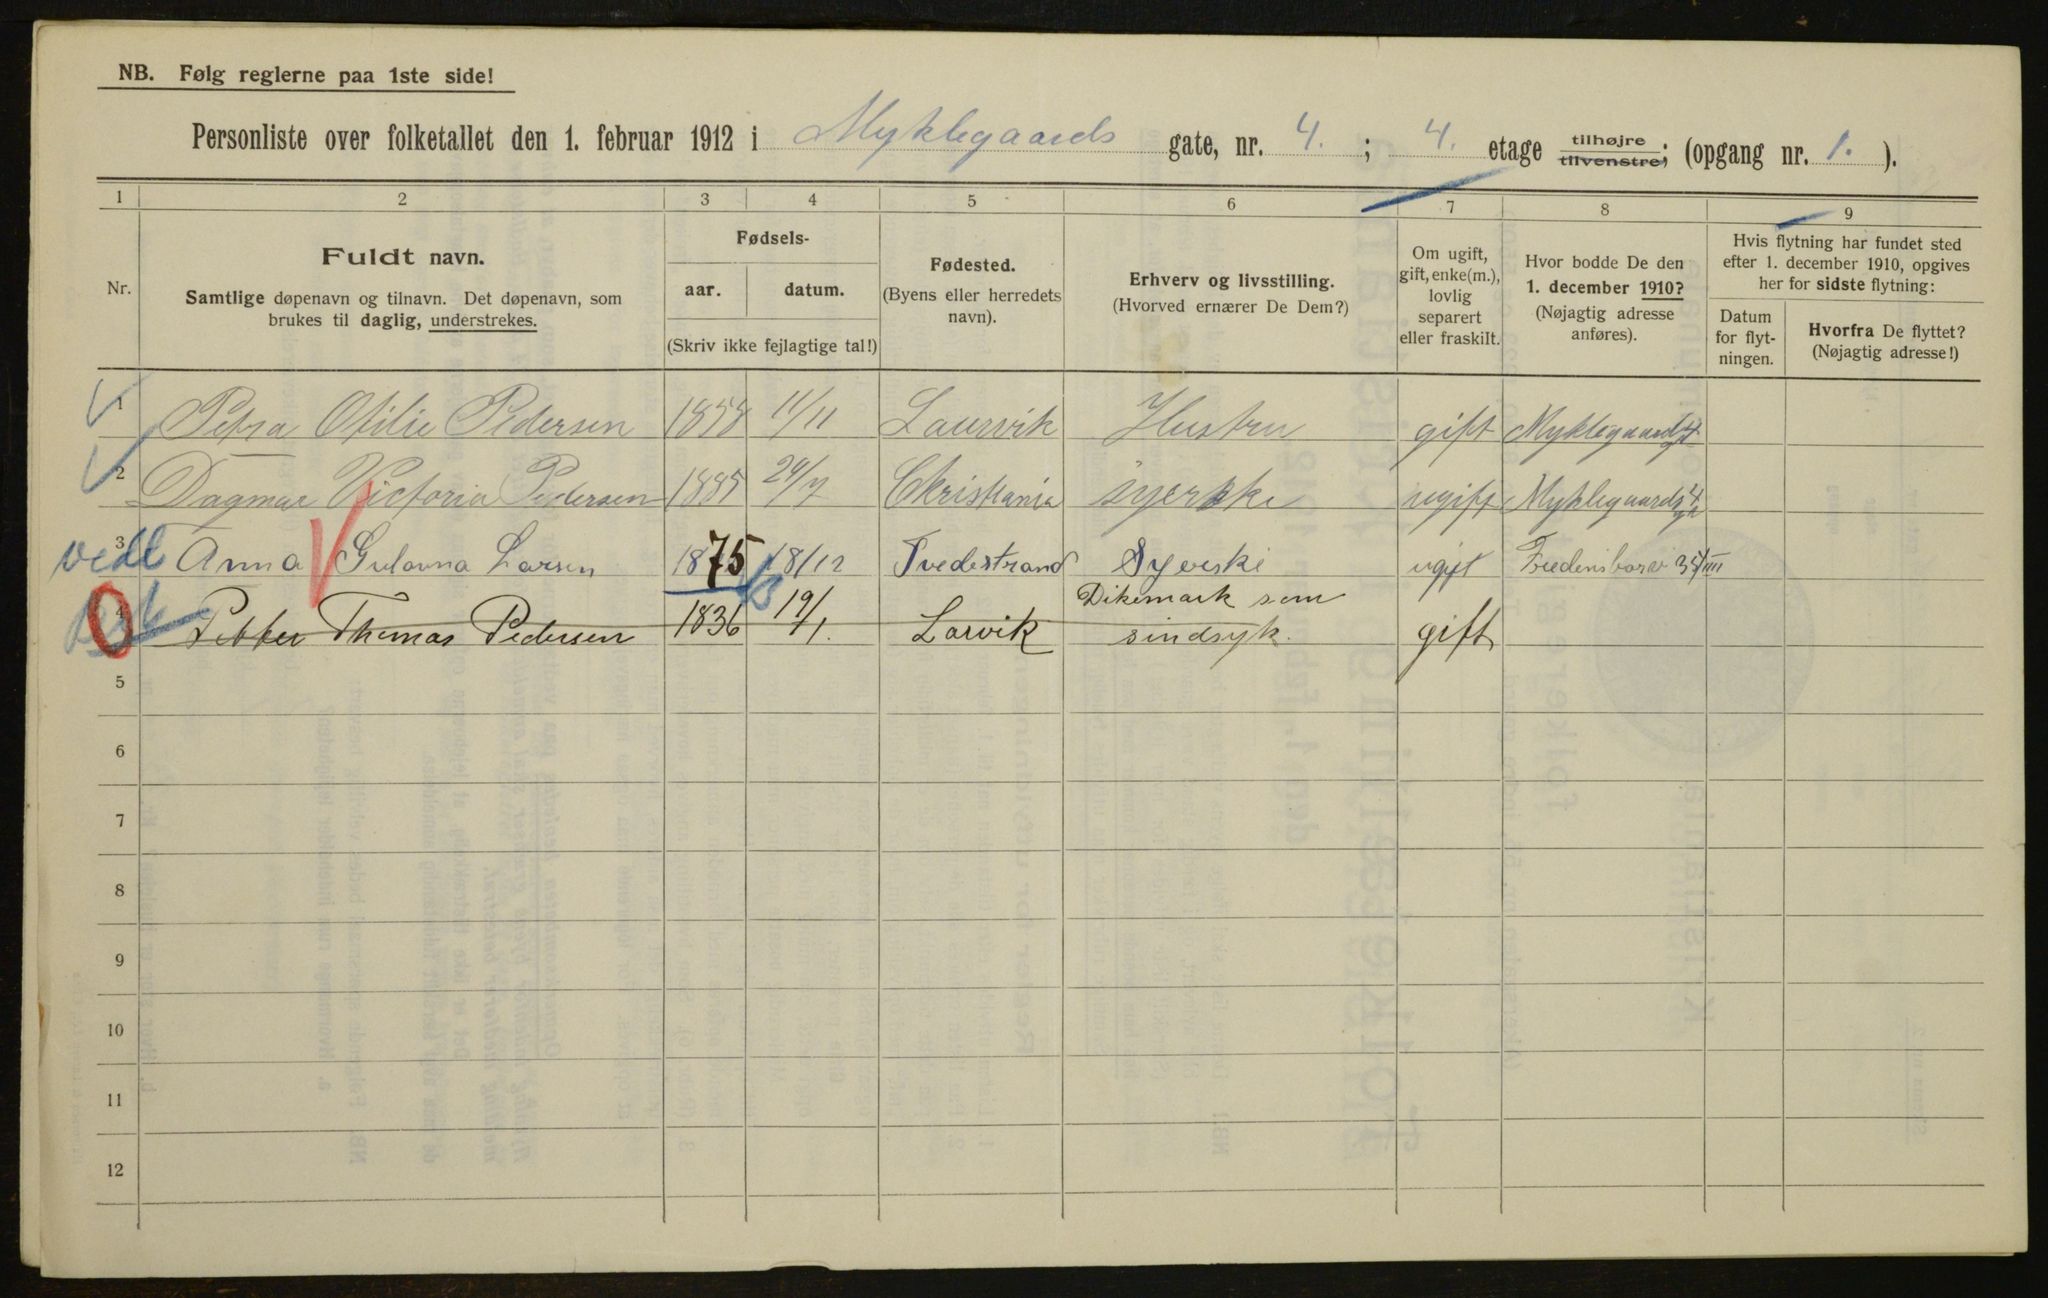 NB. Følg reglerne paa 1ste side!
Personliste over folketallet den 1. februar 1912 i Myklegaards gate, nr. 4. ; 4. etage tilhøjre tilvenstre; (opgang nr. 1. ).
1 2 3 4 5 6 7 8 9
Nr.
Fuldt navn.
Samtlige døpenavn og tilnavn. Det døpenavn, som
brukes til daglig, understrekes.
Fødsels-
aar. datum.
(Skriv ikke fejlagtige tal!)
Fødested.
(Byens eller herredets
navn).
Erhverv og livsstilling.
(Hvorved ernærer De Dem?)
Om ugift,
gift, enke(m.),
lovlig
separert
eller fraskilt.
Hvor bodde De den
1. december 1910?
(Nøjagtig adresse
anføres).
Hvis flytning har fundet sted
efter 1. december 1910, opgives
her for sidste flytning:
Datum
for flyt-
ningen.
Hvorfra De flyttet?
(Nøjagtig adresse!)
1 Petra Otilie Pedersen 1858 11/11 Laurvik Hustru gift Myklegaardsgt 4
2 Dagmar Victoria Pedersen 1885 24/7 Christiania syerske ugift Myklegaardsgt 4
3 Anna Larsen 1875 18/12 Tvedestrand Syerske ugift
Dikemark som
4 Petter Thomas Pedersen 1836 19/1. Larvik sindsyk. gift
5
6
7
8
9
10
11
12